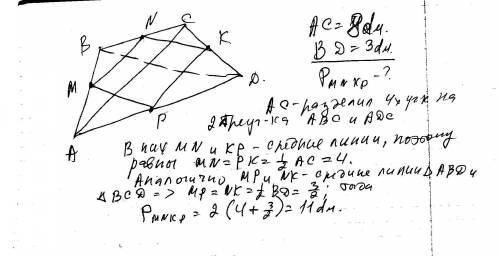 B
N
C
K
M
D.
P
A
AC = 8дм.
BD = 3дм.
P MNKP - ?
AC - разделил 4х уг-к на
2 треуг-ка ABC и ADC
В них MN и KP - средние линии, поэтому
равны MN = PK = 1/2 AC = 4.
Аналогично MP и NK - средние линии △ ABD и
△ BCD => MP = NK = 1/2 BD = 3/2; тогда
P MNKP = 2 (4 + 3/2) = 11 дм.